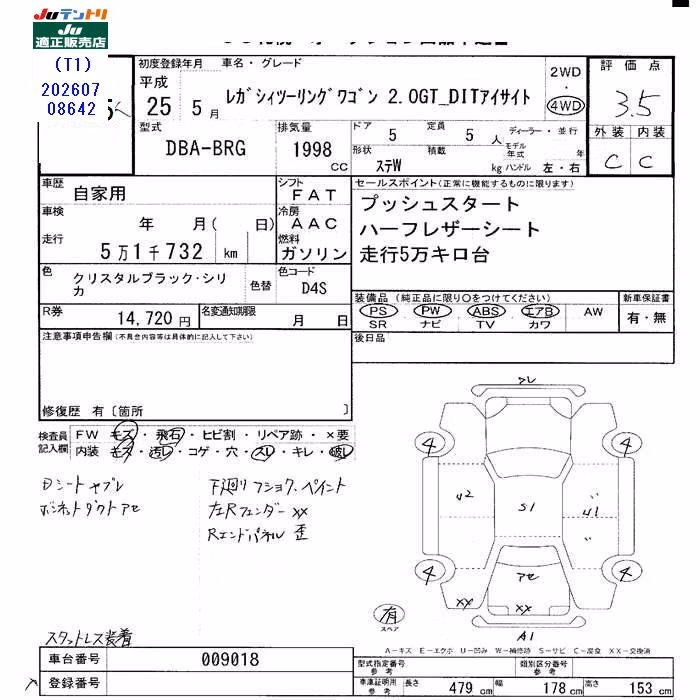 Juテントリ
Ju
適正販売店
(T1)
202607
08642
初度登録年月
平成
25 5 月
車名・グレード
レガシィツーリングワゴン 2.0GT_DITアイサイト
2WD
・
4WD
評価点
3.5
外装 内装
C C
型式
DBA-BRG
排気量
1998
CC
ドア 5 定員 5 人
ディーラー・並行
形状 ステW 積載 kg
モデル年式 年
ハンドル 左・右
車歴
自家用
シフト
FAT
車検
年 月( 日)
冷房
AAC
走行
5万1千732 km
燃料
ガソリン
色
クリスタルブラック・シリカ
色替
色コード
D4S
R券
14,720円
名変通知期限
月 日
セールスポイント(正常に機能するものに限ります)
プッシュスタート
ハーフレザーシート
走行5万キロ台
装備品 (純正品に限り○をつけてください)
PS・PW・ABS・エアB
AW
SR ナビ TV カワ
新車保証書
有・無
後日品
注意事項申告欄(不具合内容等は具体的に記入して下さい)
修復歴 有〔箇所 〕
検査員
記入欄
FW キズ・飛石・ヒビ割・リペア跡・×要
内装 キズ・汚レ・コゲ・穴・スレ・キレ・破レ
Dシートヤブレ
ボンネットダクトアセ
下廻りフショク、ペイント
左Rフェンダー××
Rエンドパネル歪
スタットレス装着
フレ
4 4
U2 S1 U1
4 4
アセ
×× ××
有
スペア
A1
A-キズ E-エクボ U-凹み W-補修跡 S-サビ C-腐食 XX-交換済
車台番号
009018
登録番号
型式指定番号
参考
類別区分番号
参考
車庫証明用
参考
長さ 479 cm 幅 178 cm 高さ 153 cm